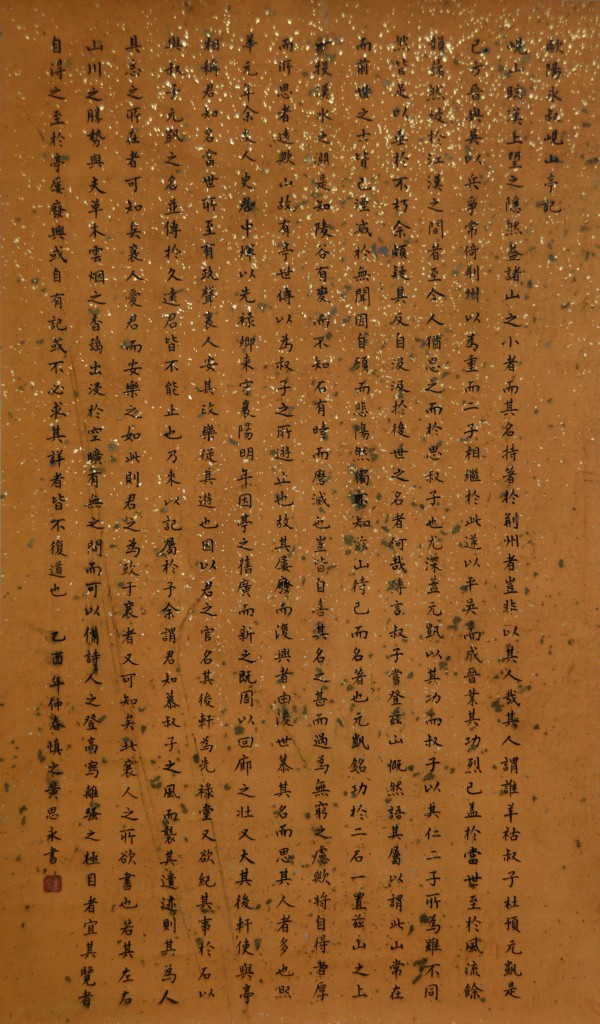 歐陽永叔峴山亭記
峴山臨漢上望之隱然蓋諸山之小者而其名特著於荊州者豈非以其人哉其人謂誰羊祜叔子杜預元凱是
已方晉與吳以兵爭常倚荊州以為重而二子相繼於此遂以平吳而成晉業其功烈已蓋於當世至於風流餘
韻藹然被於江漢之間者至今人猶思之而於思叔子也尤深蓋元凱以其功而叔子以其仁二子所為雖不同
然皆是以垂於不朽余頗疑其反自汲汲於後世之名者何哉傳言叔子嘗登茲山慨然語其屬以謂此山常在
而前世之士皆已湮滅於無聞因自顧而悲傷然獨不知茲山待己而名著也元凱銘功於二石一置茲山之上
一投漢水之淵是知陵谷有變而不知石有時而磨滅也豈皆自喜其名之甚而過為無窮之慮歟將自待者厚
而所思者遠歟山故有亭世傳以為叔子之所遊止也故其屢廢而復興者由後世慕其名而思其人者多也熙
寧元年余友人史君中煇以光祿卿來守襄陽明年因亭之舊廣而新之既周以回廊之壯又大其後軒使與亭
相稱君知名當世所至有政聲襄人安其政樂從其遊也因以君之官名其後軒為光祿堂又欲紀其事於石以
與叔子元凱之名並傳於久遠君皆不能止也乃來以記屬於予余謂君知慕叔子之風而襲其遺迹則其為人
與志之所在者可知矣襄人愛君而安樂之如此則君之為政于襄者又可知矣此襄人之所欲書也若其左右
山川之勝勢與夫草木雲烟之杳靄出沒於空曠有無之間而可以備詩人之登高寫離騷之極目者宜其覽者
自得之至於亭屢廢興或自有記或不必求其詳者皆不復道也 乙酉年仲春慎之黃思永書